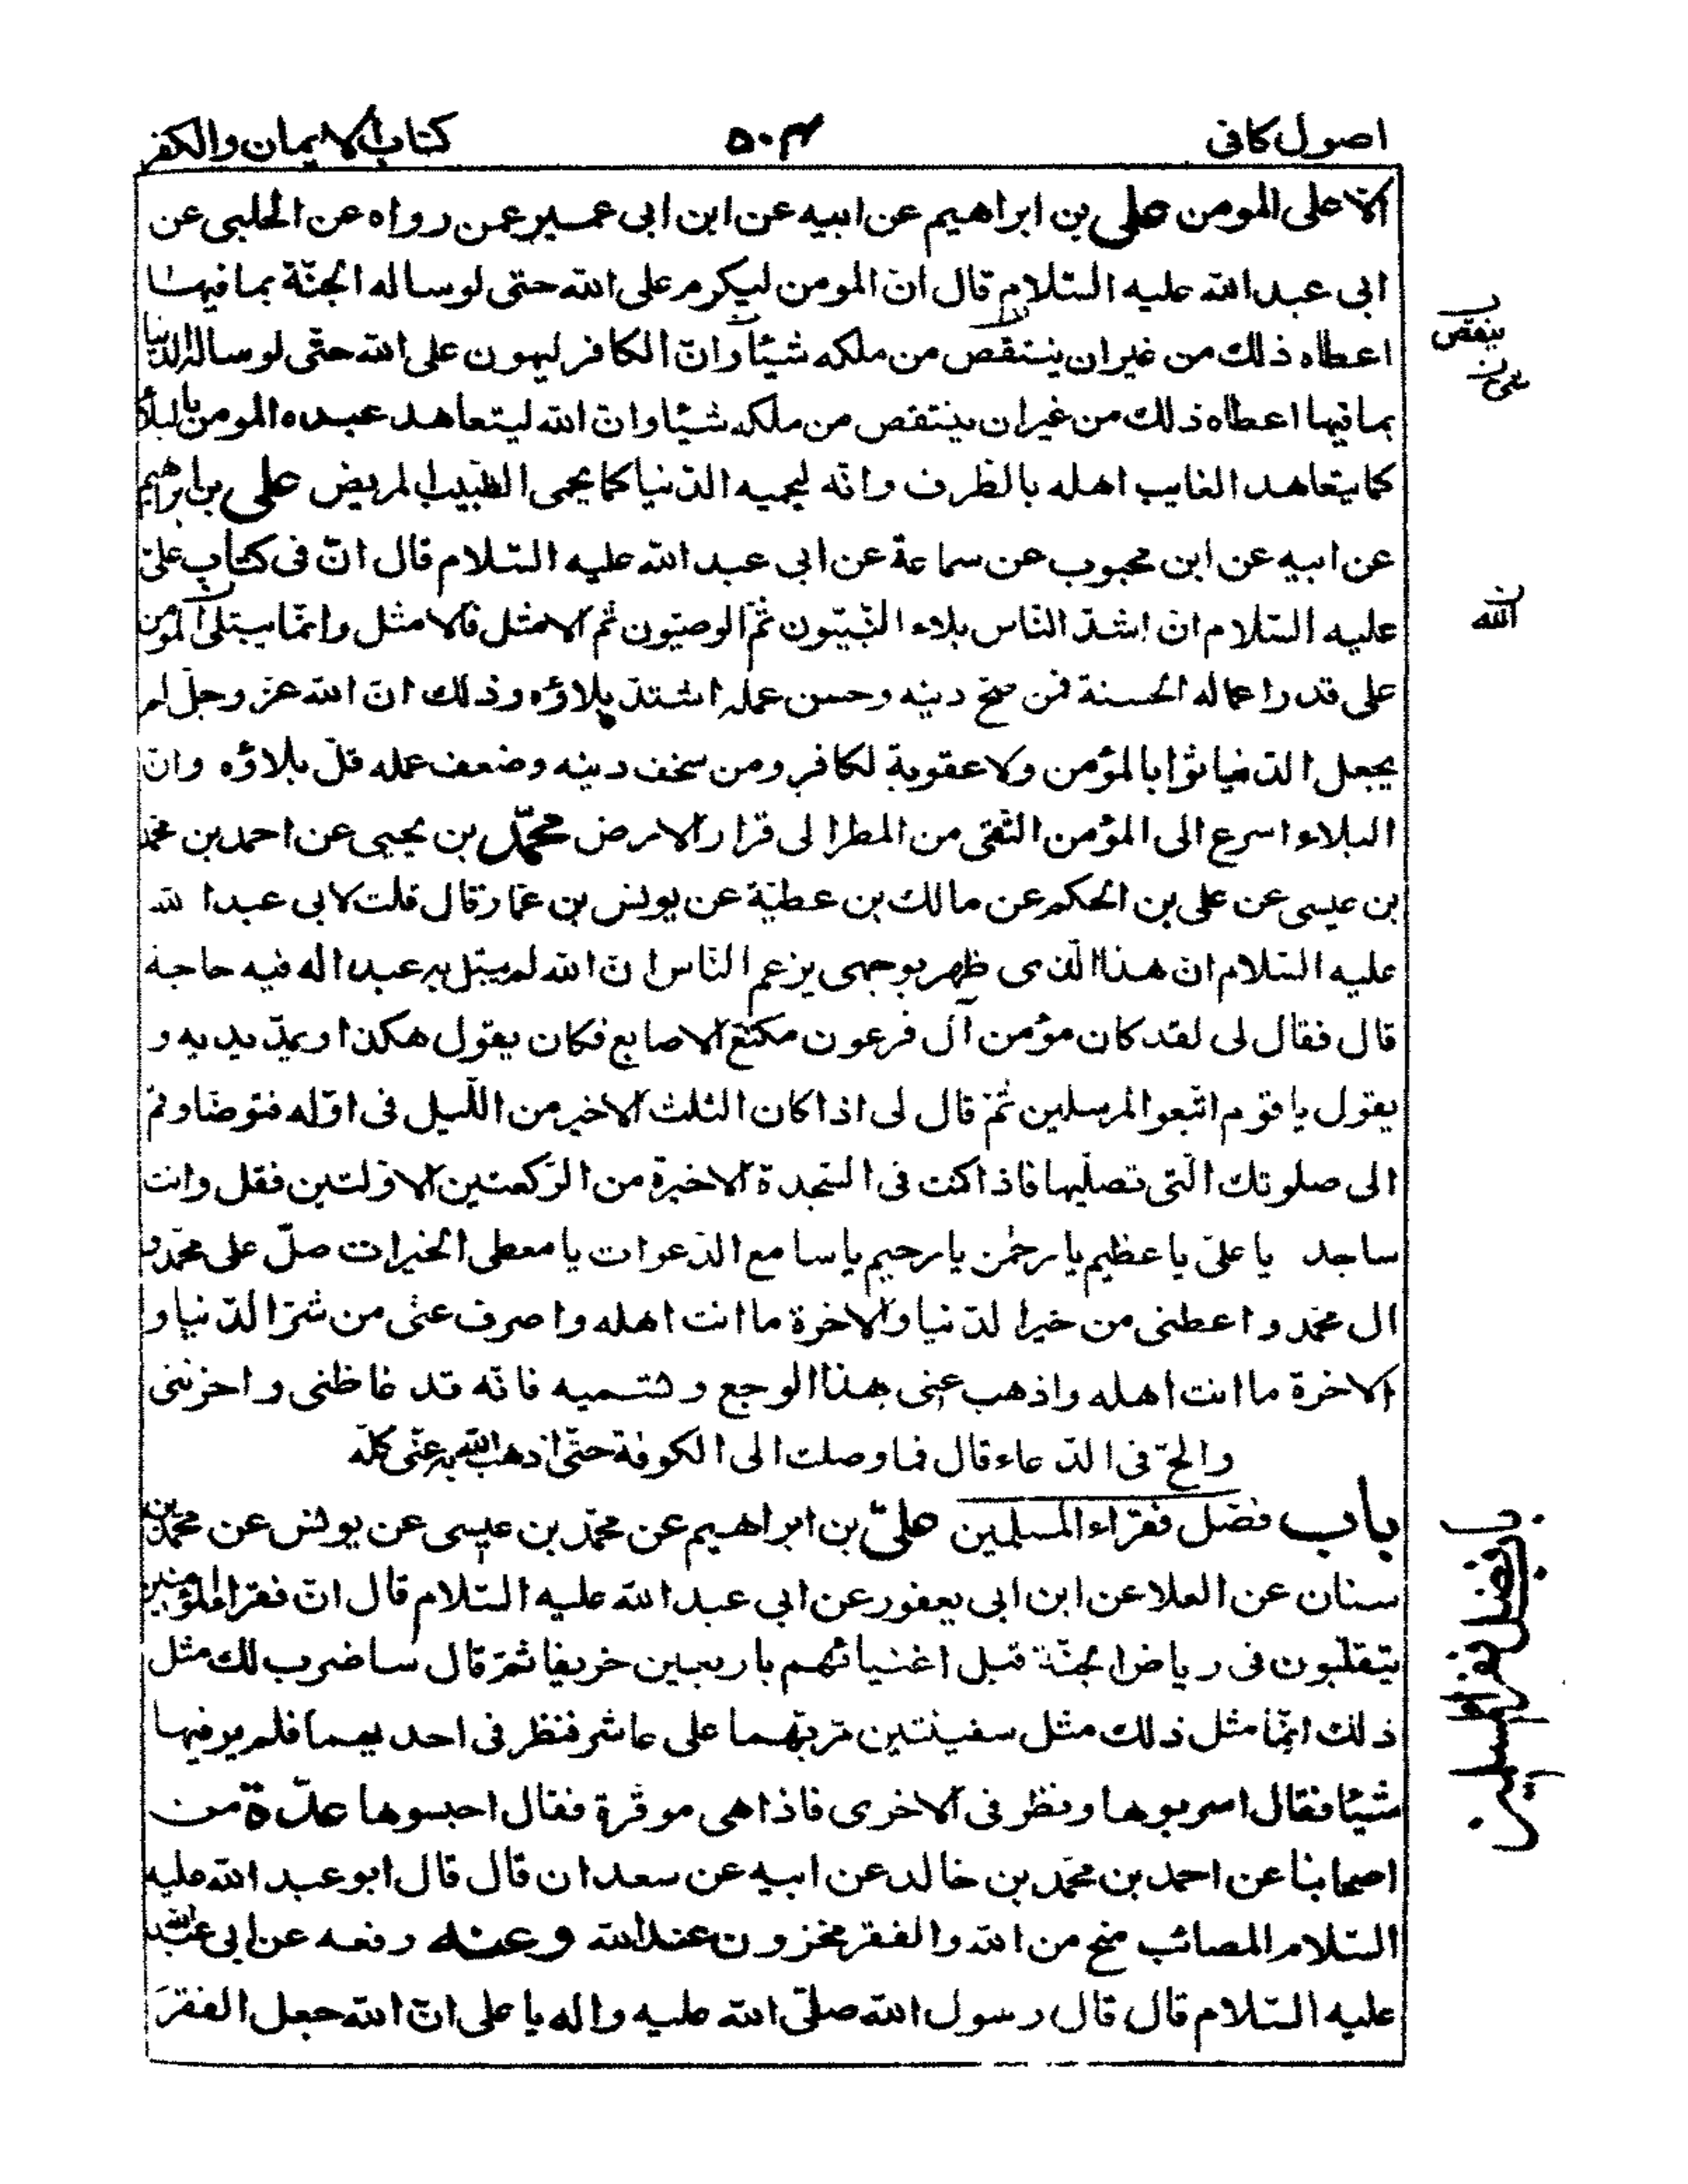 اصول كافى ۵۰۴ كتاب الايمان والكفر
الا على المومن على بن ابراهيم عن ابيه عن ابن ابى عمير عمن رواه عن الحلبى عن
ابى عبد الله عليه السّلام قال انّ المومن ليكرم على الله حتى لو ساله الجنّة بما فيها
اعطاه ذلك من غير ان ينتقص من ملكه شيئا وانّ الكافر ليهون على الله حتّى لو ساله الدنيا
بما فيها اعطاه ذلك من غير ان ينتقص من ملكه شيئا وان الله ليتعاهد عبده المومن بالبلاء
كما يتعاهد الغايب اهله بالطرف وانّه ليحميه الدّنيا كما يحمى الطّبيب المريض على بن ابراهيم
عن ابيه عن ابن محبوب عن سماعة عن ابى عبد الله عليه السّلام قال انّ فى كتاب علىّ
عليه السّلام ان اشدّ النّاس بلاء النّبيّون ثمّ الوصيّون ثم الامثل فالامثل وانّما يبتلى المؤمن
على قدر اعماله الحسنة فمن صحّ دينه وحسن عمله اشتدّ بلاؤه وذلك انّ الله عزّ وجلّ لم
يجعل الدّنيا ثوابا لمؤمن ولا عقوبة لكافر ومن سخف دينه وضعف عمله قلّ بلاؤه وانّ
البلاء اسرع الى المؤمن التّقى من المطر الى قرار الارض محمّد بن يحيى عن احمد بن محمّد
بن عيسى عن على بن الحكم عن مالك بن عطيّة عن يونس بن عمّار قال قلت لابى عبد الله
عليه السّلام ان هذا الّذى ظهر بوجهى يزعم النّاس انّ الله لم يبتل به عبدا له فيه حاجة
قال فقال لى لقد كان مؤمن آل فرعون مكنّع الاصابع فكان يقول هكذا ويمدّ يديه و
يقول يا قوم اتّبعوا المرسلين ثمّ قال لى اذا كان الثلث الاخير من اللّيل فى اوّله فتوضّا وقم
الى صلوتك الّتى تصلّيها فاذا كنت فى السّجدة الاخيرة من الرّكعتين الاوّلتين فقل وانت
ساجد يا علىّ يا عظيم يا رحمٰن يا رحيم يا سامع الدّعوات يا معطى الخيرات صلّ على محمّد و
ال محمّد واعطنى من خير الدّنيا والاخرة ما انت اهله واصرف عنّى من شرّ الدّنيا و
الاخرة ما انت اهله واذهب عنى هذا الوجع وتسميه فانّه قد غاظنى واحزننى
والحّ فى الدّعاء قال فما وصلت الى الكوفة حتّى اذهب الله به عنّى كلّه
باب فضل فقراء المسلمين علىّ بن ابراهيم عن محمّد بن عيسى عن يونس عن محمّد بن
سنان عن العلا عن ابن ابى يعفور عن ابى عبد الله عليه السّلام قال انّ فقراء المؤمنين
يتقلّبون فى رياض الجنّة قبل اغنيائهم باربعين خريفا ثمّ قال ساضرب لك مثل
ذلك انّما مثل ذلك مثل سفينتين مرّ بهما على عاشر فنظر فى احديهما فلم ير فيها
شيئا فقال اسربوها ونظر فى الاخرى فاذا هى موقرة فقال احبسوها عدّة من
اصحابنا عن احمد بن محمّد بن خالد عن ابيه عن سعدان قال قال ابو عبد الله عليه
السّلام المصائب منح من الله والفقر مخزون عند الله وعنه رفعه عن ابى عبد الله
عليه السّلام قال قال رسول الله صلّى الله عليه واله يا على انّ الله جعل الفقر
ينقص
الله